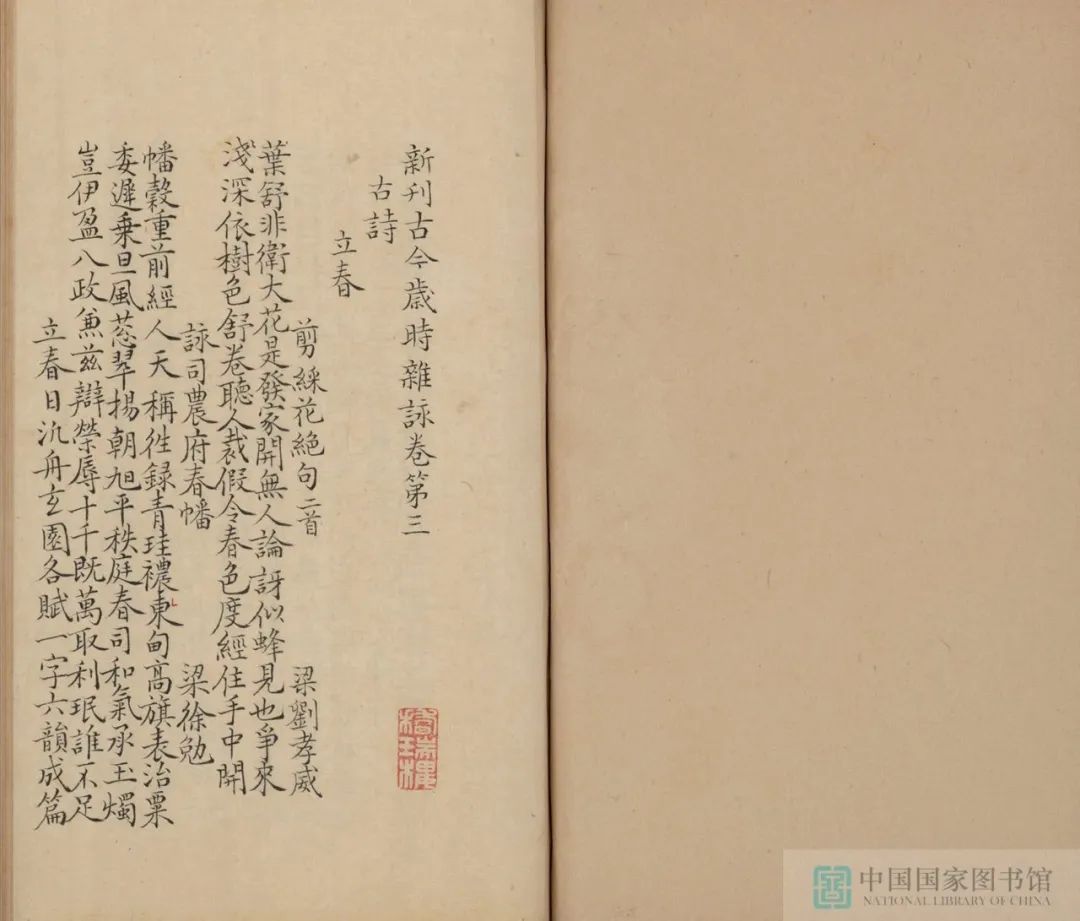 新刊古今歲時雜詠卷第三
古詩
立春
剪綵花絕句二首 梁劉孝威
葉舒非衛大花是發家開無人論訝似蜂見也爭來
淺深依樹色舒卷聽人裁假令春色度經住手中開
詠司農府春幡 梁徐勉
幡轂重前經人天稱往録青珪禮東甸高旗表治粟
委遲乗旦風葱翠揚朝旭平秩庭春司和氣承玉燭
豈伊盈八政兼兹辯榮辱十千既萬取利珉誰不足
立春日汎舟玄圃各賦一字六韻成篇
中国国家图书馆
NATIONAL LIBRARY OF CHINA